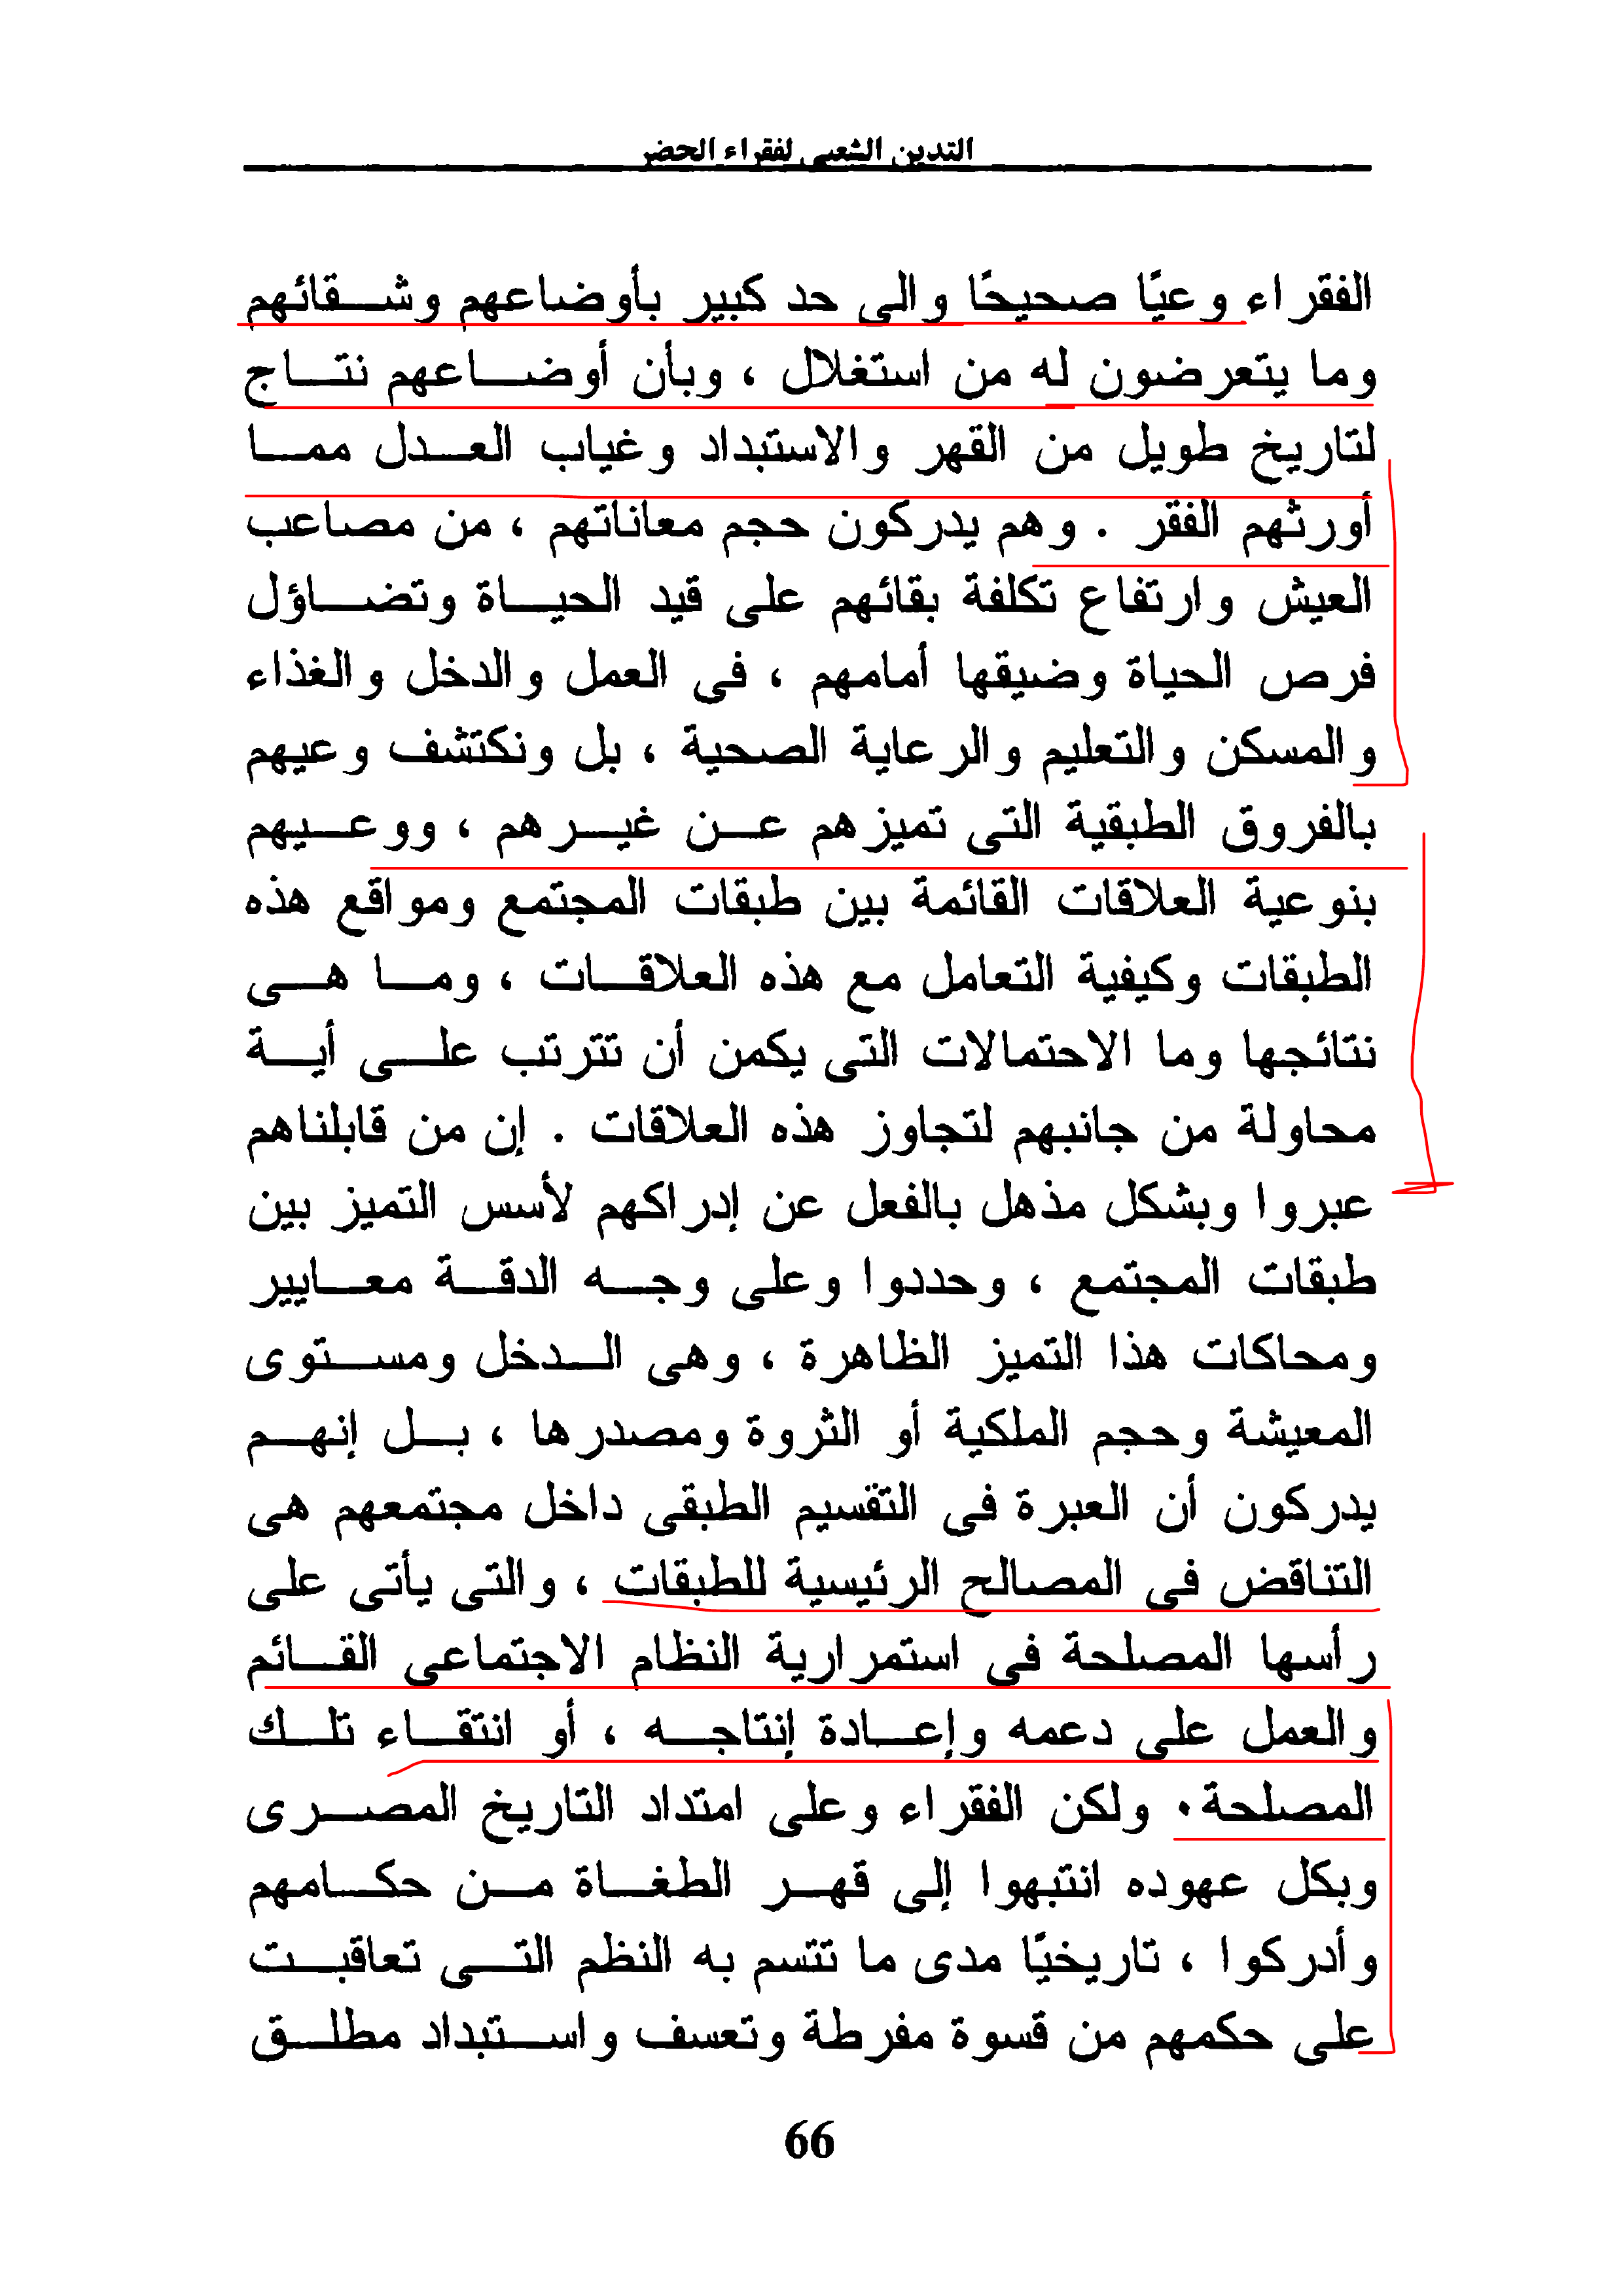 التدين الشعبى لفقراء الحضر
الفقراء وعيًا صحيحًا والى حد كبير بأوضاعهم وشقائهم
وما يتعرضون له من استغلال ، وبأن أوضاعهم نتاج
لتاريخ طويل من القهر والاستبداد وغياب العدل مما
أورثهم الفقر . وهم يدركون حجم معاناتهم ، من مصاعب
العيش وارتفاع تكلفة بقائهم على قيد الحياة وتضاؤل
فرص الحياة وضيقها أمامهم ، فى العمل والدخل والغذاء
والمسكن والتعليم والرعاية الصحية ، بل ونكتشف وعيهم
بالفروق الطبقية التى تميزهم عن غيرهم ، ووعيهم
بنوعية العلاقات القائمة بين طبقات المجتمع ومواقع هذه
الطبقات وكيفية التعامل مع هذه العلاقات ، وما هى
نتائجها وما الاحتمالات التى يكمن أن تترتب على أية
محاولة من جانبهم لتجاوز هذه العلاقات . إن من قابلناهم
عبروا وبشكل مذهل بالفعل عن إدراكهم لأسس التميز بين
طبقات المجتمع ، وحددوا وعلى وجه الدقة معايير
ومحاكات هذا التميز الظاهرة ، وهى الدخل ومستوى
المعيشة وحجم الملكية أو الثروة ومصدرها ، بل إنهم
يدركون أن العبرة فى التقسيم الطبقى داخل مجتمعهم هى
التناقض فى المصالح الرئيسية للطبقات ، والتى يأتى على
رأسها المصلحة فى استمرارية النظام الاجتماعى القائم
والعمل على دعمه وإعادة إنتاجه ، أو انتقاء تلك
المصلحة٠ ولكن الفقراء وعلى امتداد التاريخ المصرى
وبكل عهوده انتبهوا إلى قهر الطغاة من حكامهم
وأدركوا ، تاريخيًا مدى ما تتسم به النظم التى تعاقبت
على حكمهم من قسوة مفرطة وتعسف واستبداد مطلق
66